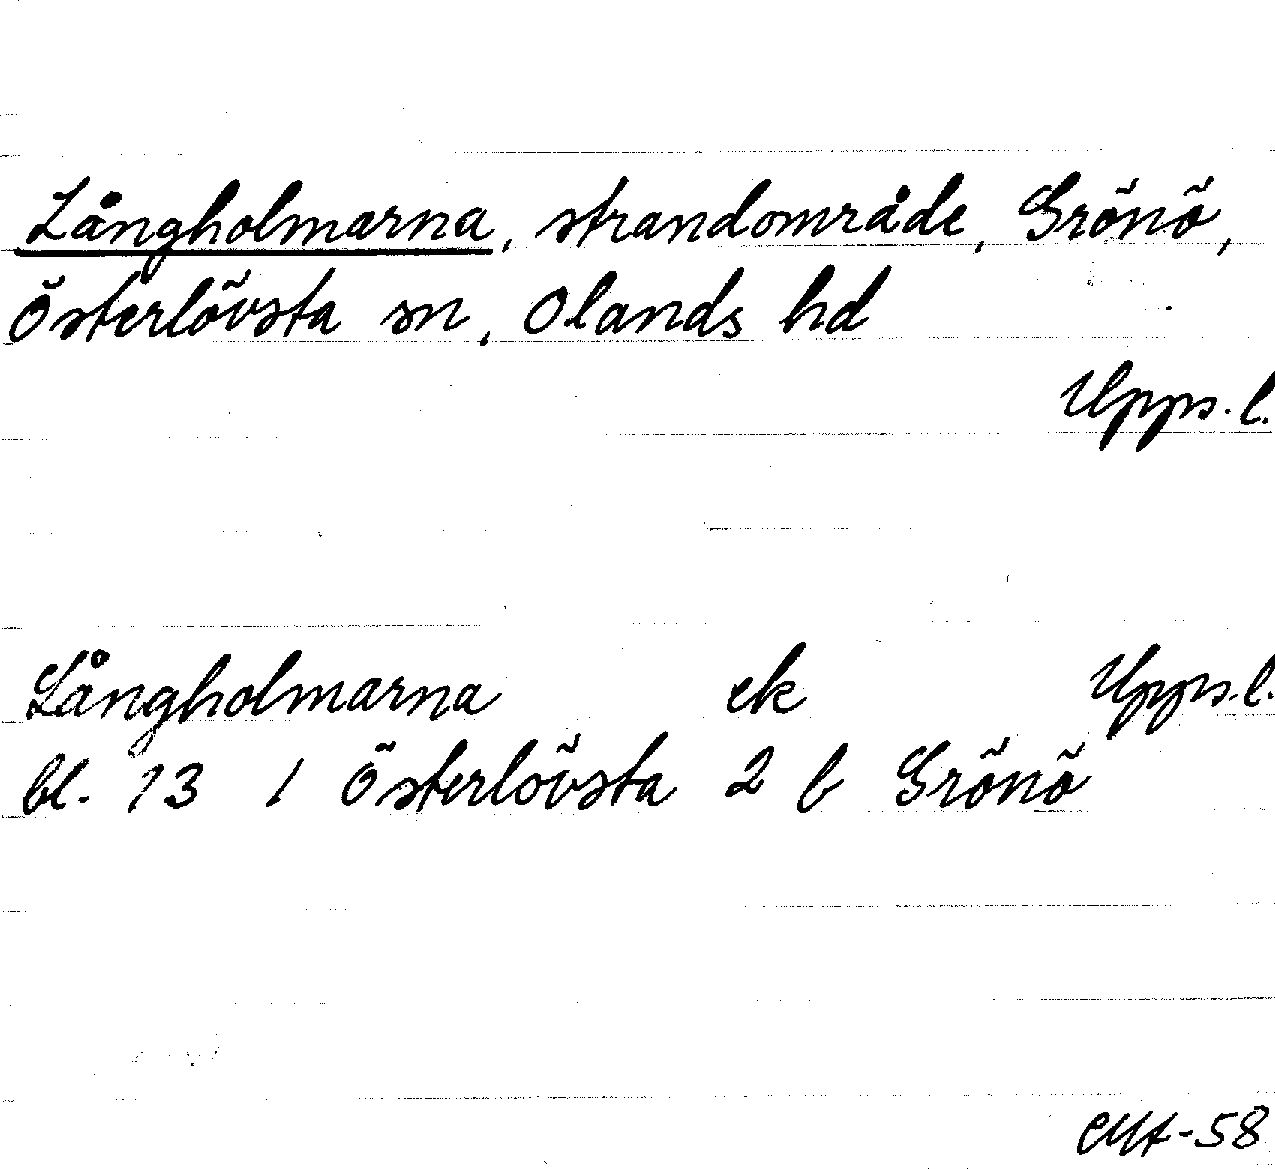 Långholmarna, strandområde, Grönö,
Österlövsta sn, Olands hd
Upps. l.
Långholmarna ek Upps. l.
bl. 13 1 Österlövsta 2 b Grönö
-58